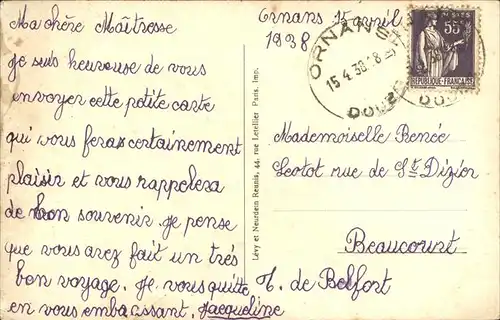 Ma chère Maîtresse
Je suis heureuse de vous
envoyer cette petite carte
qui vous feras certainement
plaisir et vous rappelera
de bon souvenir. Je pense
que vous avez fait un très
bon voyage. Je vous quitte
en vous embrassant. Jacqueline
Lévy et Neurdein Réunis, 44, rue Letellier Paris. Imp.
Ornans
1938
ORNANS
15.4.38
DOUBS
55
REPUBLIQUE-FRANÇAISE
Mademoiselle Renée
rue de St Dizier
Beaucourt
T. de Belfort